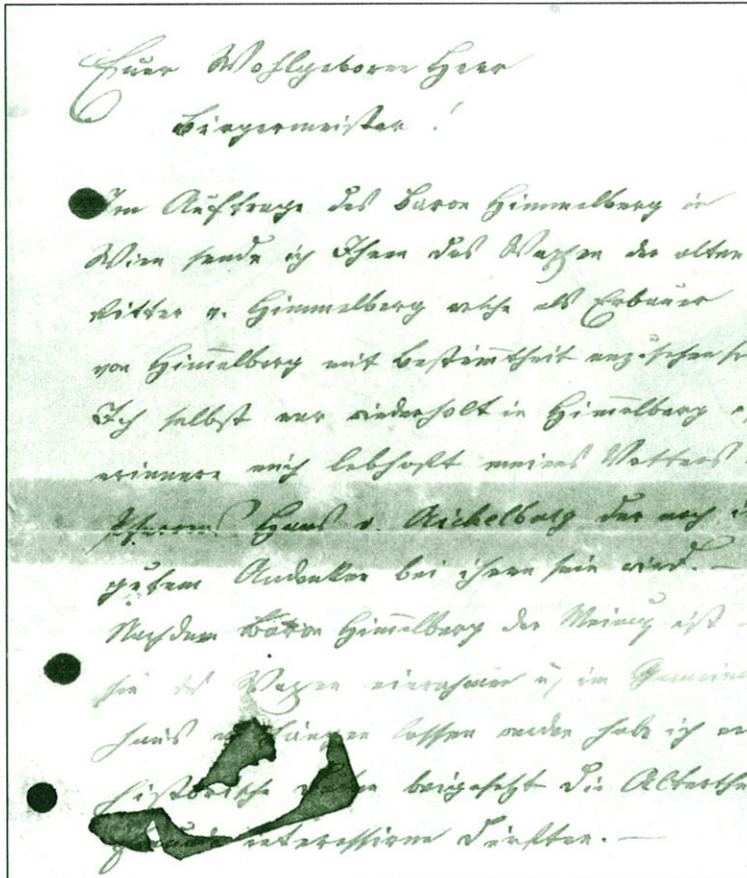 Euer Wohlgeboren Herr
Bürgermeister!
Im Auftrage des Baron Himmelberg in
Wien sende ich Ihnen das Wappen der alten
Ritter v. Himmelberg welche als Erbauer
von Him̄elberg mit Bestim̄theit anzusehen
Ich selbst war wiederholt in Him̄elberg
erinnere mich lebhaft meines Vetters
Pfarrers Hans v. Aichelburg der noch
gutem Andenken bei ihnen sein wird. —
Nachdem Baron Him̄elberg der Meinung ist
sie das Wappen einrahmen u. im
haus lassen werden habe ich
historische beigesetzt die
interessiren dürften. —